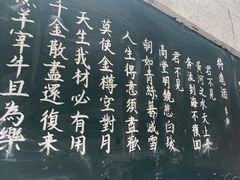 將進酒
君不見
黃河之水天上來
奔流到海不復回
君不見
高堂明鏡悲白髮
朝如青絲暮成雪
人生得意須盡歡
莫使金樽空對月
天生我材必有用
千金散盡還復來
羊宰牛且為樂